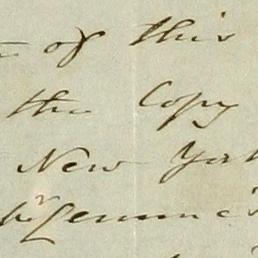 of this
the Copy
New York